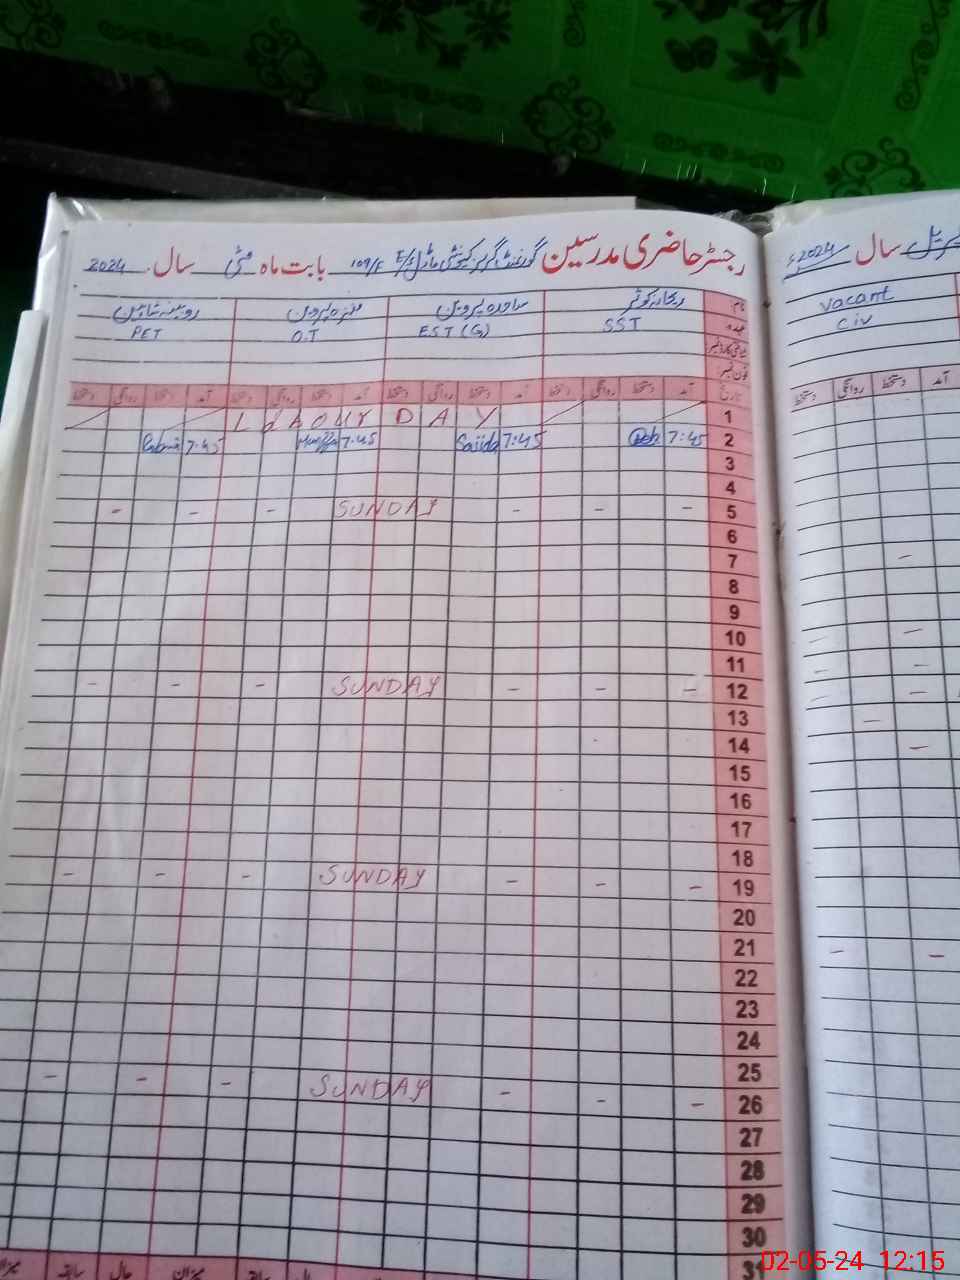 رجسٹر حاضری مدرسین گورنمنٹ گرلز کمیونٹی ماڈل E/S 109/F بابت ماہ مئی سال 2024
نام ریحانہ کوثر ساجدہ پروین منزہ پروین روبینہ شاہین
عہدہ SST EST (G) O.T PET
فون نمبر
تاریخ آمد دستخط روانگی دستخط آمد دستخط روانگی دستخط آمد دستخط روانگی دستخط آمد دستخط روانگی دستخط
1 Labour DAY
2 7:45 7:45 Sajida 7:45 7:45
3
4
5 - - - SUNDAY - - -
6
7
8
9
10
11
12 - - - SUNDAY - - -
13
14
15
16
17
18
19 - - - SUNDAY - - -
20
21
22
23
24
25
26 - - - SUNDAY - - -
27
28
29
30
31
میزان سابقہ حال میزان سابقہ حال
اپریل سال 2024ء
Vacant
Civ
آمد دستخط روانگی دستخط
02-05-24 12:15